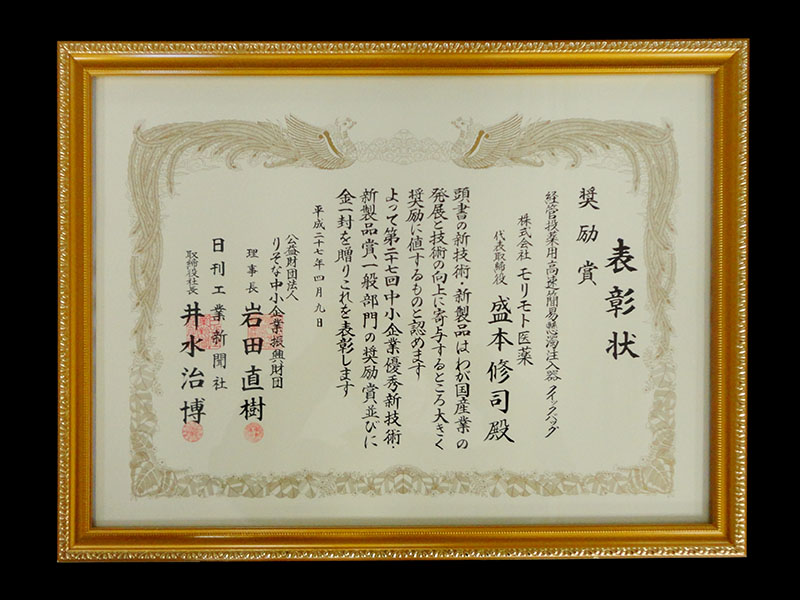 表彰状
奨励賞
経管投薬用高速簡易懸濁注入器 クイックバッグ
株式会社 モリモト医薬
代表取締役 盛本修司殿
頭書の新技術・新製品はわが国産業の
発展と技術の向上に寄与するところ大きく
奨励に値するものと認めます
よって第二十七回中小企業優秀新技術・
新製品賞、一般部門の奨励賞並びに
金一封を贈りこれを表彰します
平成二十七年四月九日
公益財団法人
りそな中小企業振興財団
理事長 岩田直樹
日刊工業新聞社
取締役社長 井水治博